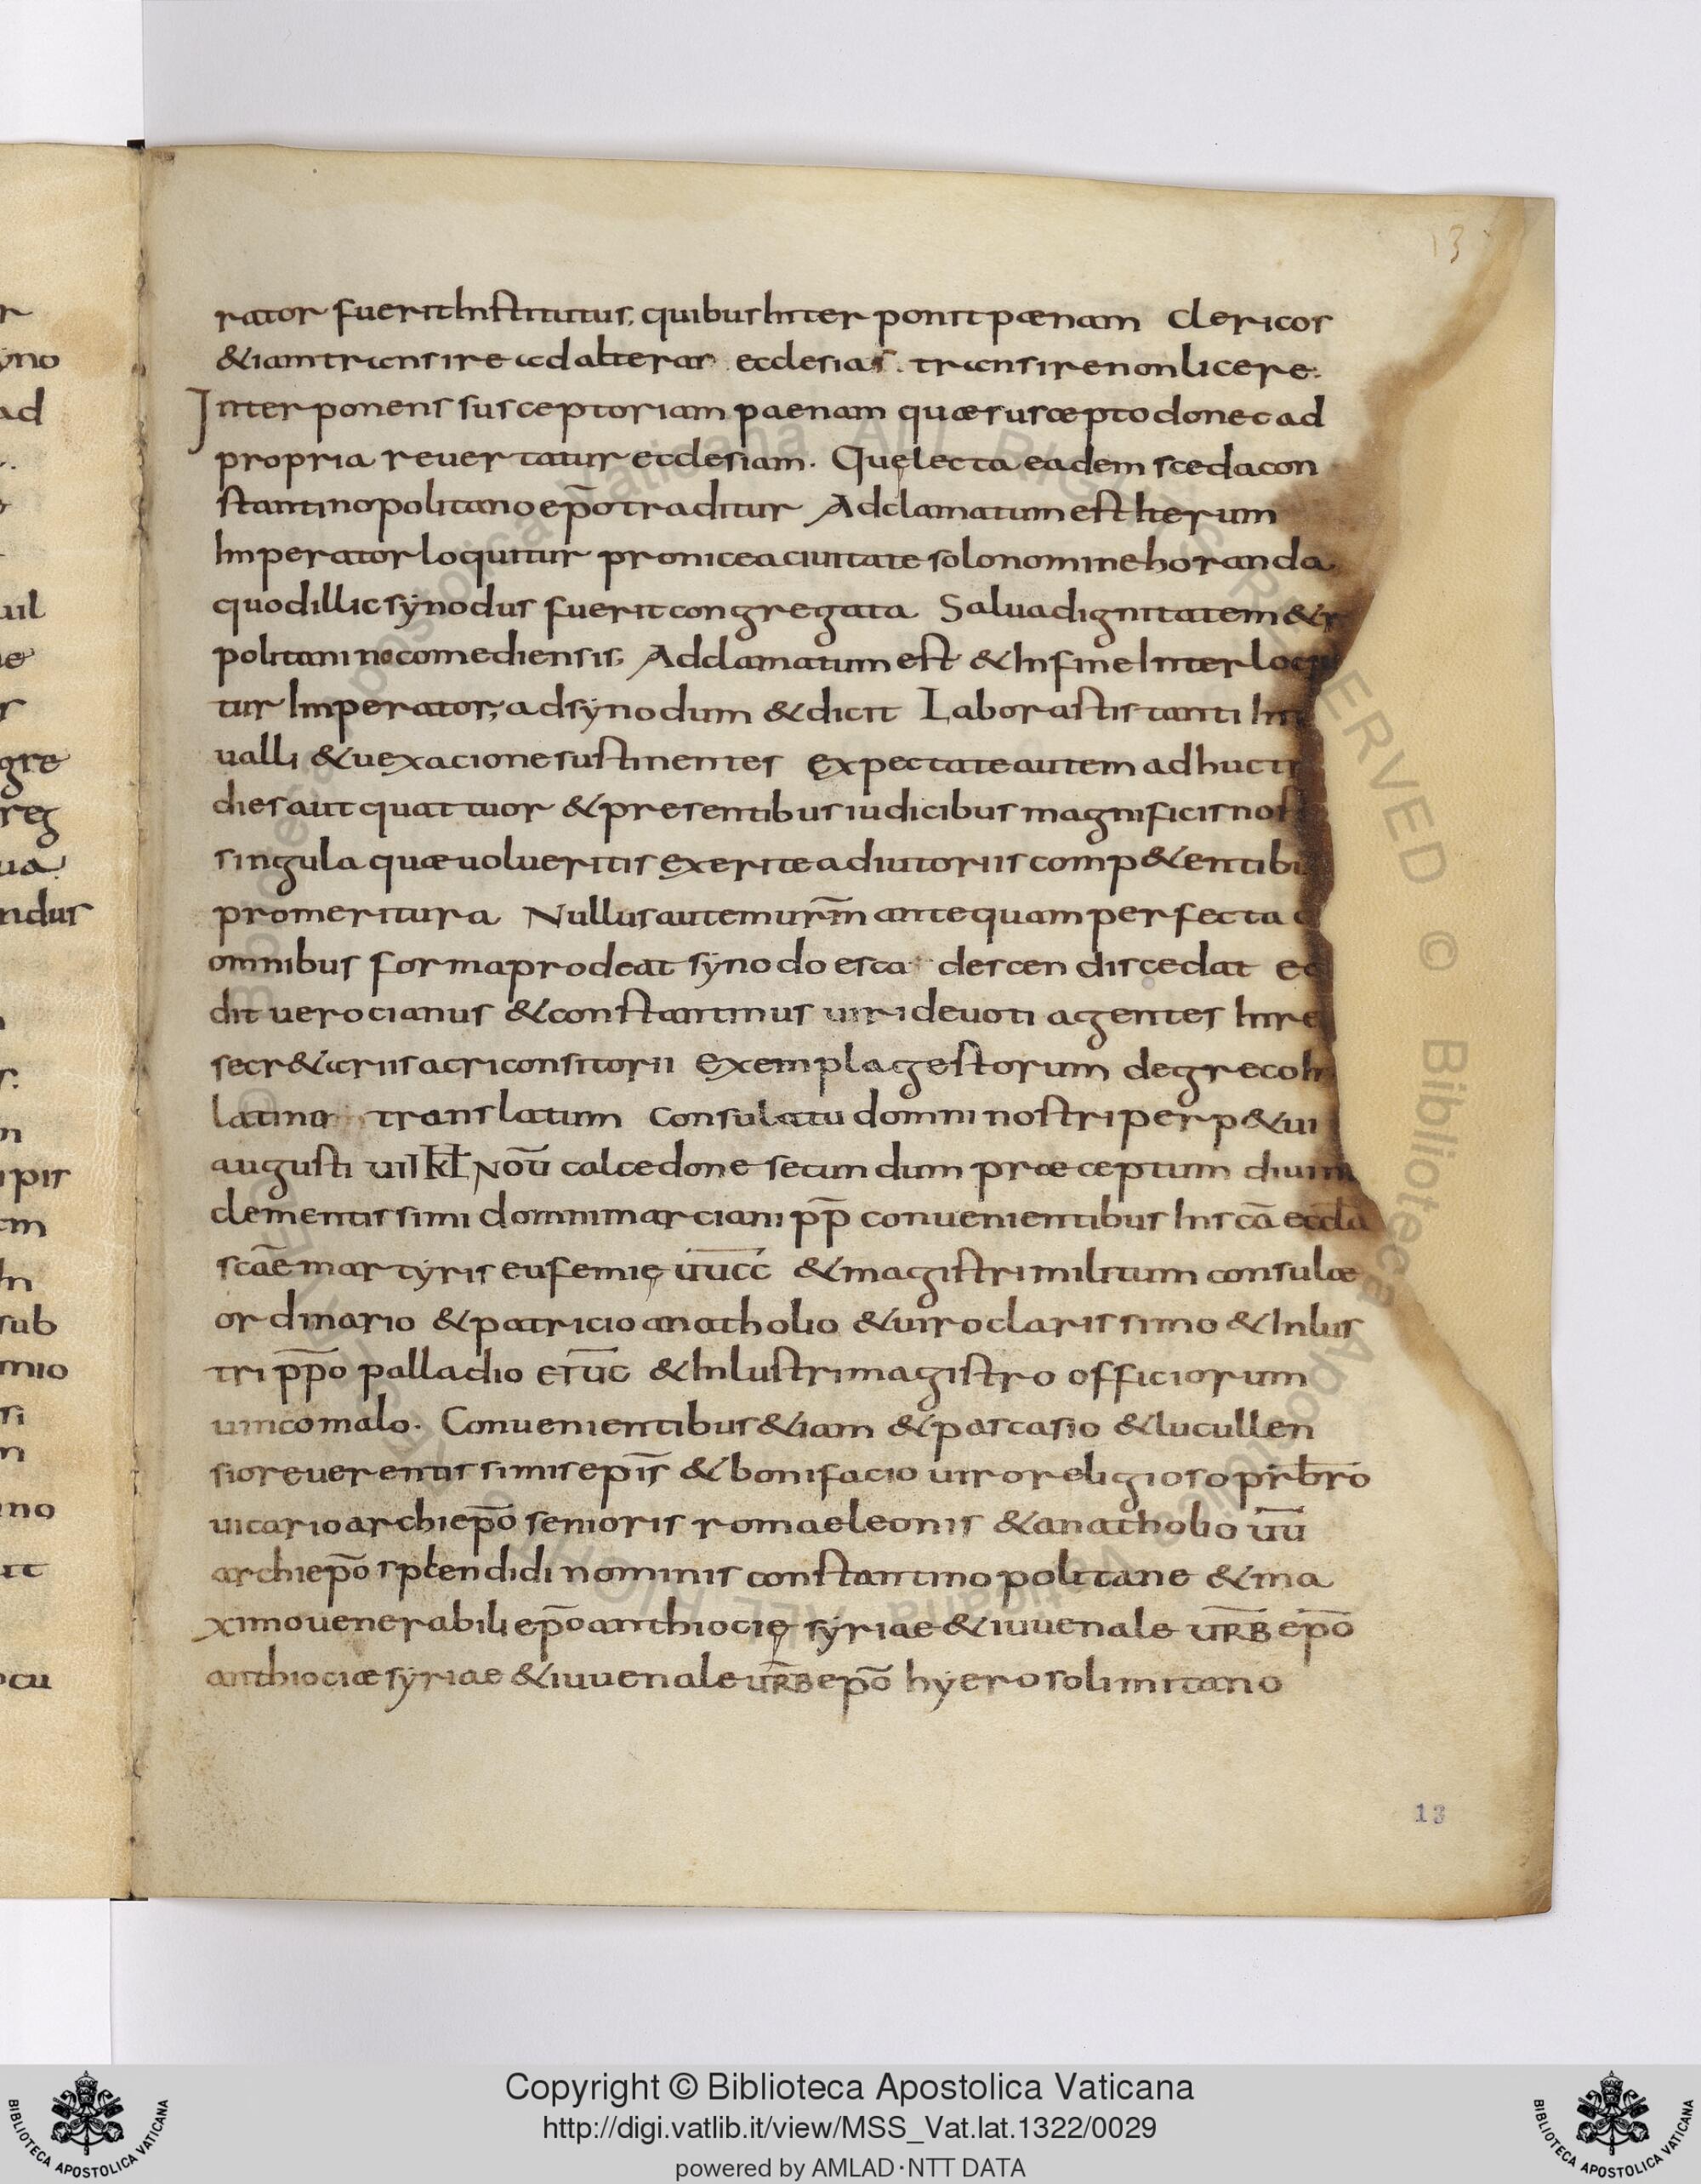 13
rator fuerit institutus; quibus inter ponit pœnam clericos
&iam transire ad alteras ecclesias. transire non licere.
Inter ponens susceptoriam paenam quæ suscepto donec ad
propria reuertatur ecclesiam. Quę lecta eadem sceda con
stantinopolitano ep̄o traditur Adclamatum est iterum
Imperator loquitur pro nicea ciuitate solo nomine horanda
quod illic sẏnodus fuerit congregata Salua dignitate m&r
politani nicomediensis; Adclamatum est & In fine Interlocu
tur Imperator; ad sẏnodum & dicit Laborastis tanti In
ualli & uexacione sustinentes expectate autem adhuc tr
dies aut quattuor & presentibus iudicibus magnificis nost
singula quæ uolueritis exerite adiutoriis comp&entib
promeritura Nullus autem ur̄m antequam perfecta
omnibus forma prodeat sẏnodo esca descen discedat e
dit uerocianus & constantinus uiri deuoti agentes In re
secr&ariis acri consitorii Exempla gestorum de greco In
latino translatum Consulatu domni nostri perp&ui
augusti uii kł Noū calcedone secundum præceptum diuini
clementissimi domni marciani pp̄ conuenientibus In scā eccla
scāe martẏris eufemię ūūcc & magistri militum consulæ
ordinario & patricio anatholio & uiro clarissimo & Inlus
tri pp̄o palladio etūc & Inlustri magistro officiorum
uincomalo. Conuenientibus &iam & parcasio & lucullen
sio reuerentissimis ep̄is & bonifacio uiro religioso pr̄bro
uicario archiep̄o senioris romae leonis & anatholio ūū
archiep̄o splendidi nominis constantinopolitane & ma
ximo uenerabili ep̄o anthiocię sẏriae & iuuenale ūRB ep̄o
anthiociæ sẏriae & iuuenale ūRB ep̄o hẏerosolimitano
13
Copyright © Biblioteca Apostolica Vaticana
http://digi.vatlib.it/view/MSS_Vat.lat.1322/0029
powered by AMLAD·NTT DATA
BIBLIOTECA APOSTOLICA VATICANA
BIBLIOTECA APOSTOLICA VATICANA